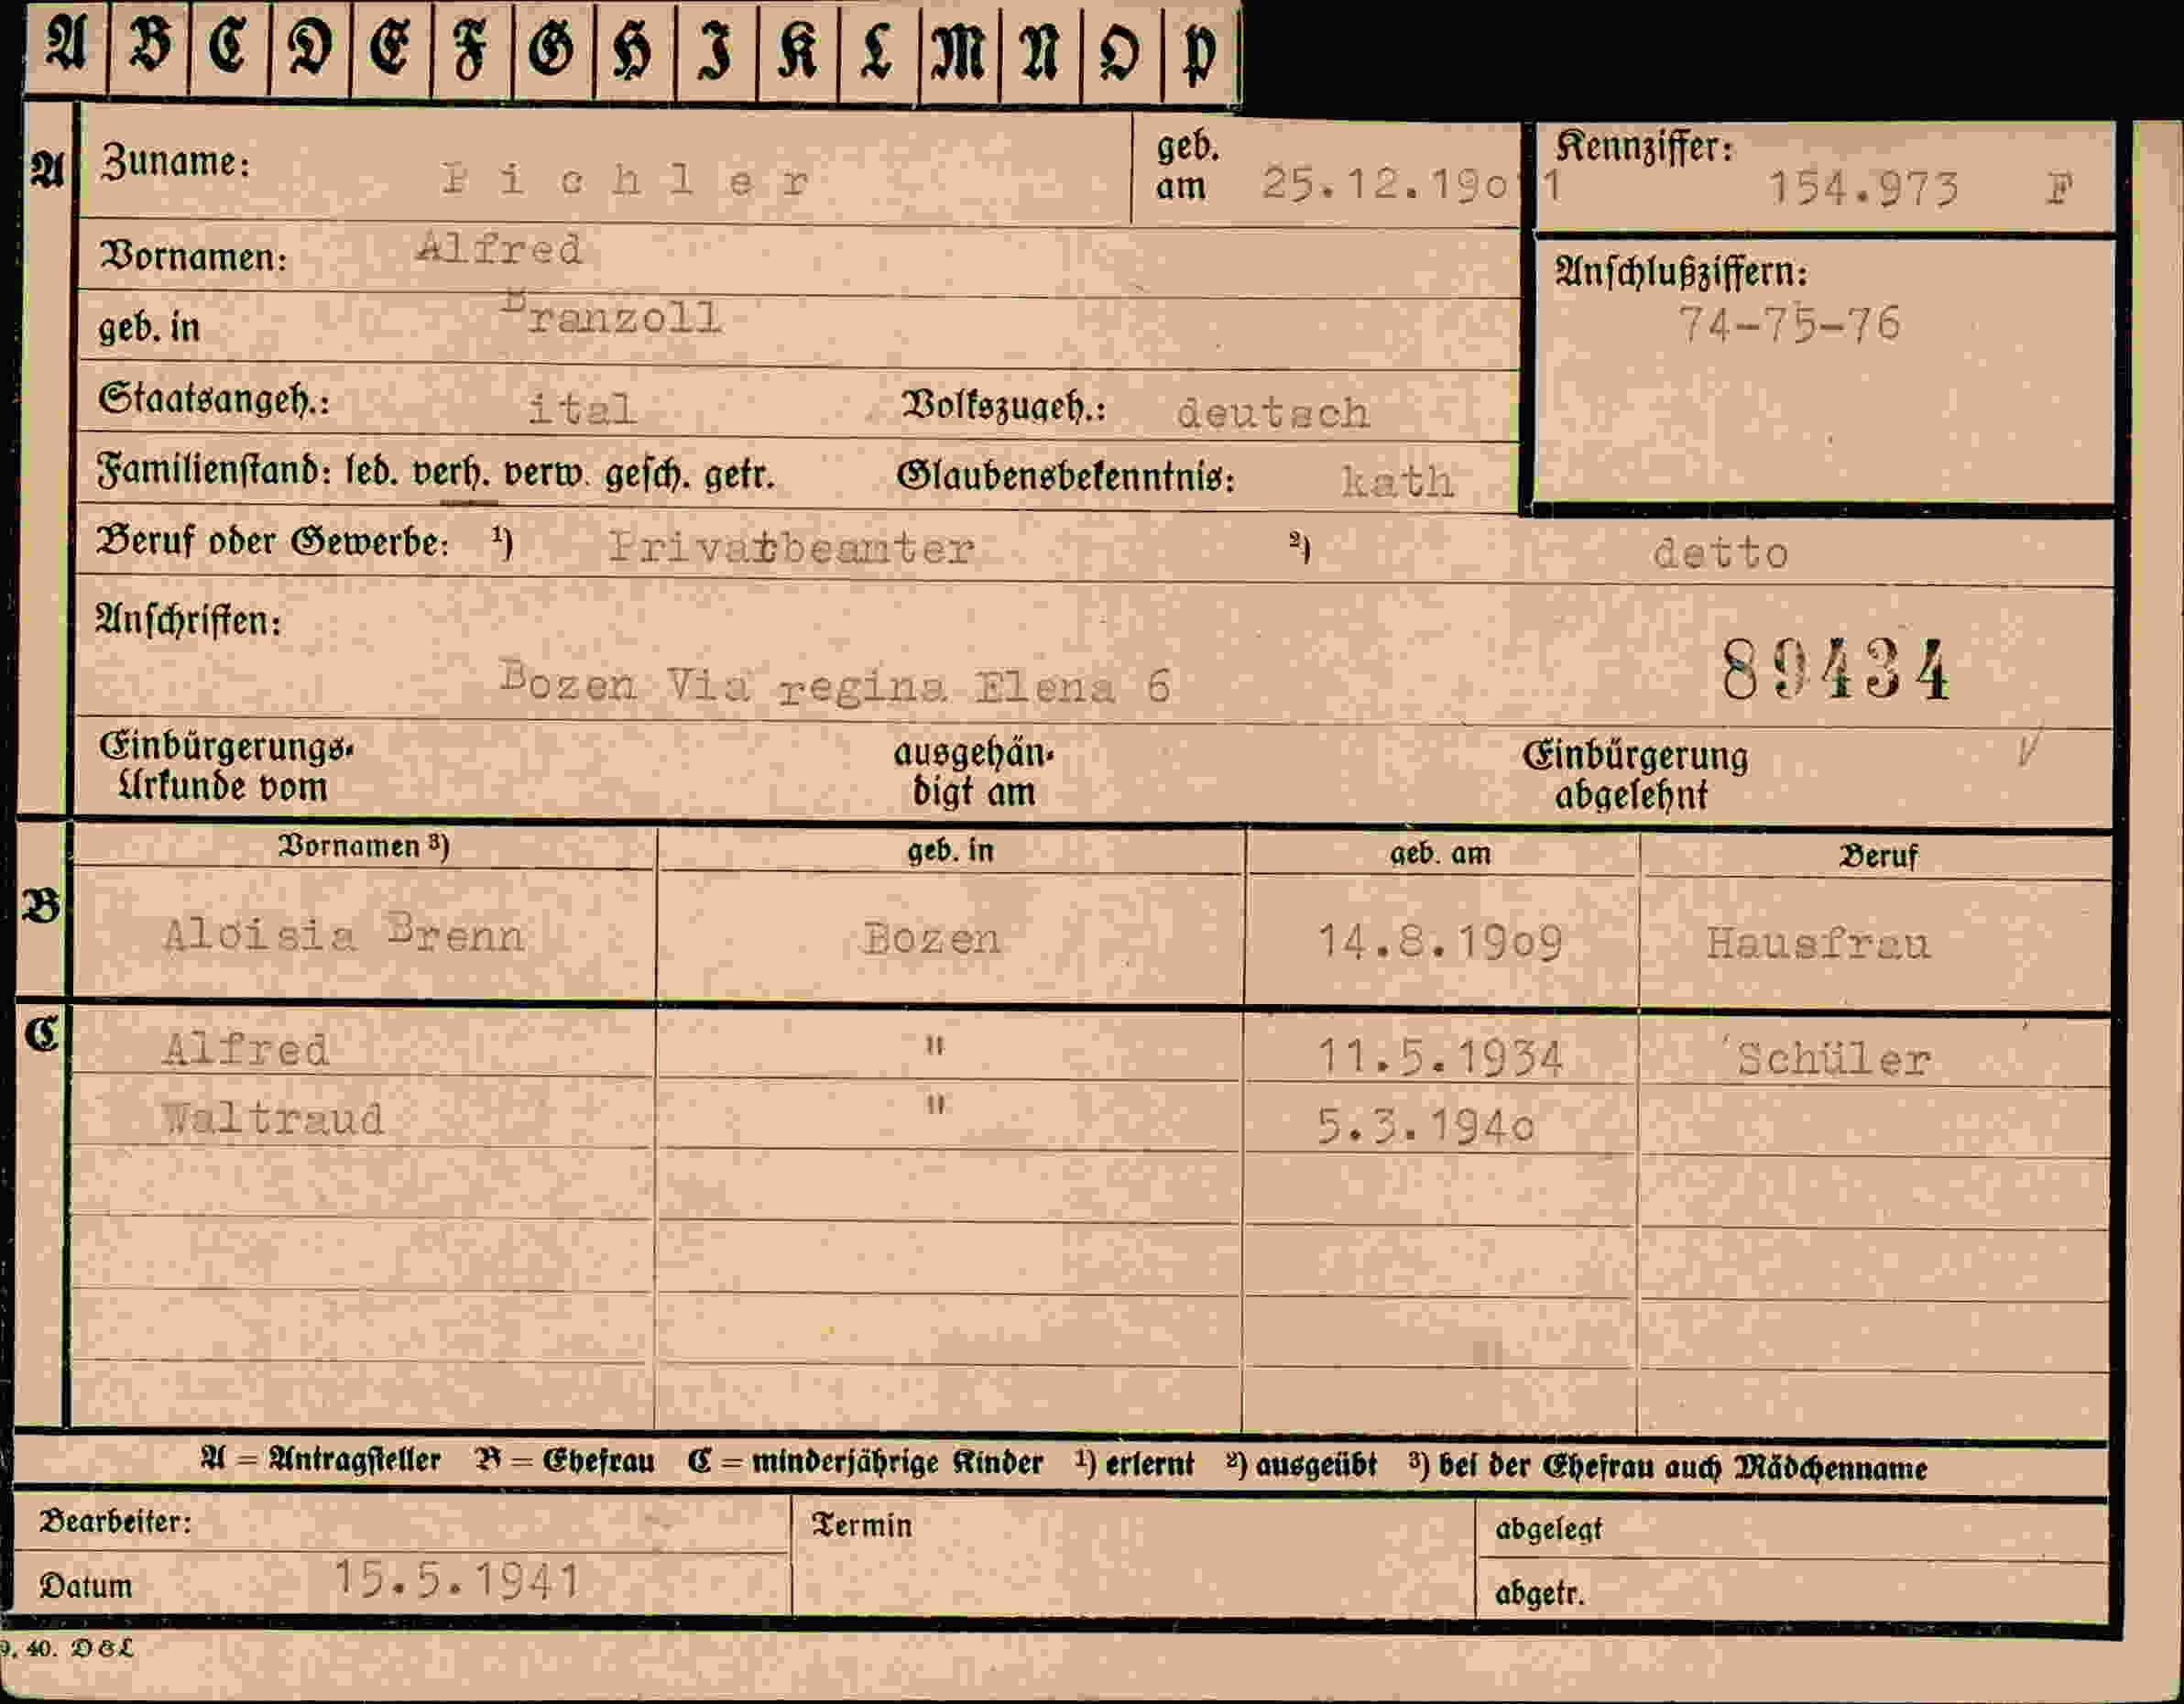 A B C D E F G H I K L M N O P
A Zuname: Pichler geb. am 25.12.19o1 Kennziffer: 154.973 F
Vornamen: Alfred Anschlußziffern:
geb. in Branzoll 74-75-76
Staatsangeh.: ital Volkszugeh.: deutsch
Familienstand: led. verh. verw. gesch. getr. Glaubensbekenntnis: kath
Beruf oder Gewerbe: ¹) Privatbeamter ²) detto
Anschriften:
Bozen Via regina Elena 6 89434
Einbürgerungs- ausgehän- Einbürgerung
Urkunde vom digt am abgelehnt
Vornamen ³) geb. in geb. am Beruf
B Aloisia Brenn Bozen 14.8.19o9 Hausfrau
C Alfred " 11.5.1934 Schüler
Waltraud " 5.3.194o
A = Antragsteller B = Ehefrau C = minderjährige Kinder ¹) erlernt ²) ausgeübt ³) bei der Ehefrau auch Mädchenname
Bearbeiter: Termin abgelegt
Datum 15.5.1941 abgetr.
9. 40. D & L